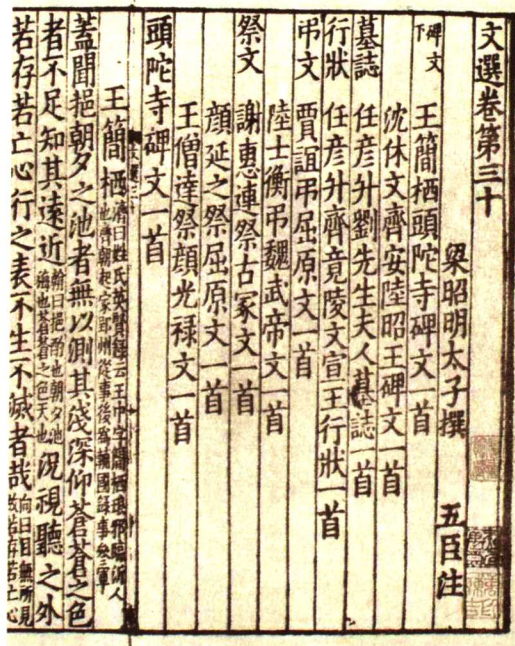 文選卷第三十
梁昭明太子撰 五臣注
碑文下
王簡栖頭陀寺碑文一首
沈休文齊安陸昭王碑文一首
墓誌
任彦升劉先生夫人墓誌一首
行狀
任彦升齊竟陵文宣王行狀一首
弔文
賈誼弔屈原文一首
陸士衡弔魏武帝文一首
祭文
謝惠連祭古冢文一首
顔延之祭屈原文一首
王僧達祭顔光祿文一首
頭陀寺碑文一首
王簡栖 濟曰姓氏英賢録云王巾字簡栖琅邪臨沂人也齊朝起家郢州從事後爲輔國録事叅軍
蓋聞挹朝夕之池者無以測其淺深仰蒼蒼之色
者不足知其遠近 翰曰挹酌也朝夕池海也蒼蒼之色天也 況視聽之外
若存若亡心行之表不生不滅者哉 向曰目無所見故若存若亡心